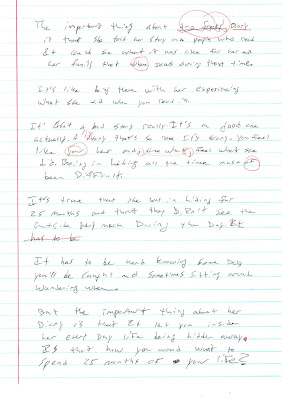 The important thing about Ann Franks Diary
is that she told her story and people who read
it could see what it was like for her and
her family that when Jews during that time.
It's like being there with her experiencing
what she did when you read it.
It's a bad story really It's a good one
actually. A story that's so sad It's scary. you feel
like your her and you feel what she
did. Being in hiding all the time must of
been Difficult.
It's true that she was in hiding for
25 months and that they Didnit see the
outside very much During the Day. But
has to be
It has to be hard knowing some Day
you'll be caught and sometimes sitting around
wundering when.
But the important thing about her
Diary is that it let you inside
her every Day life being hidden away.
Is that how you would want to
spend 25 months of your life?